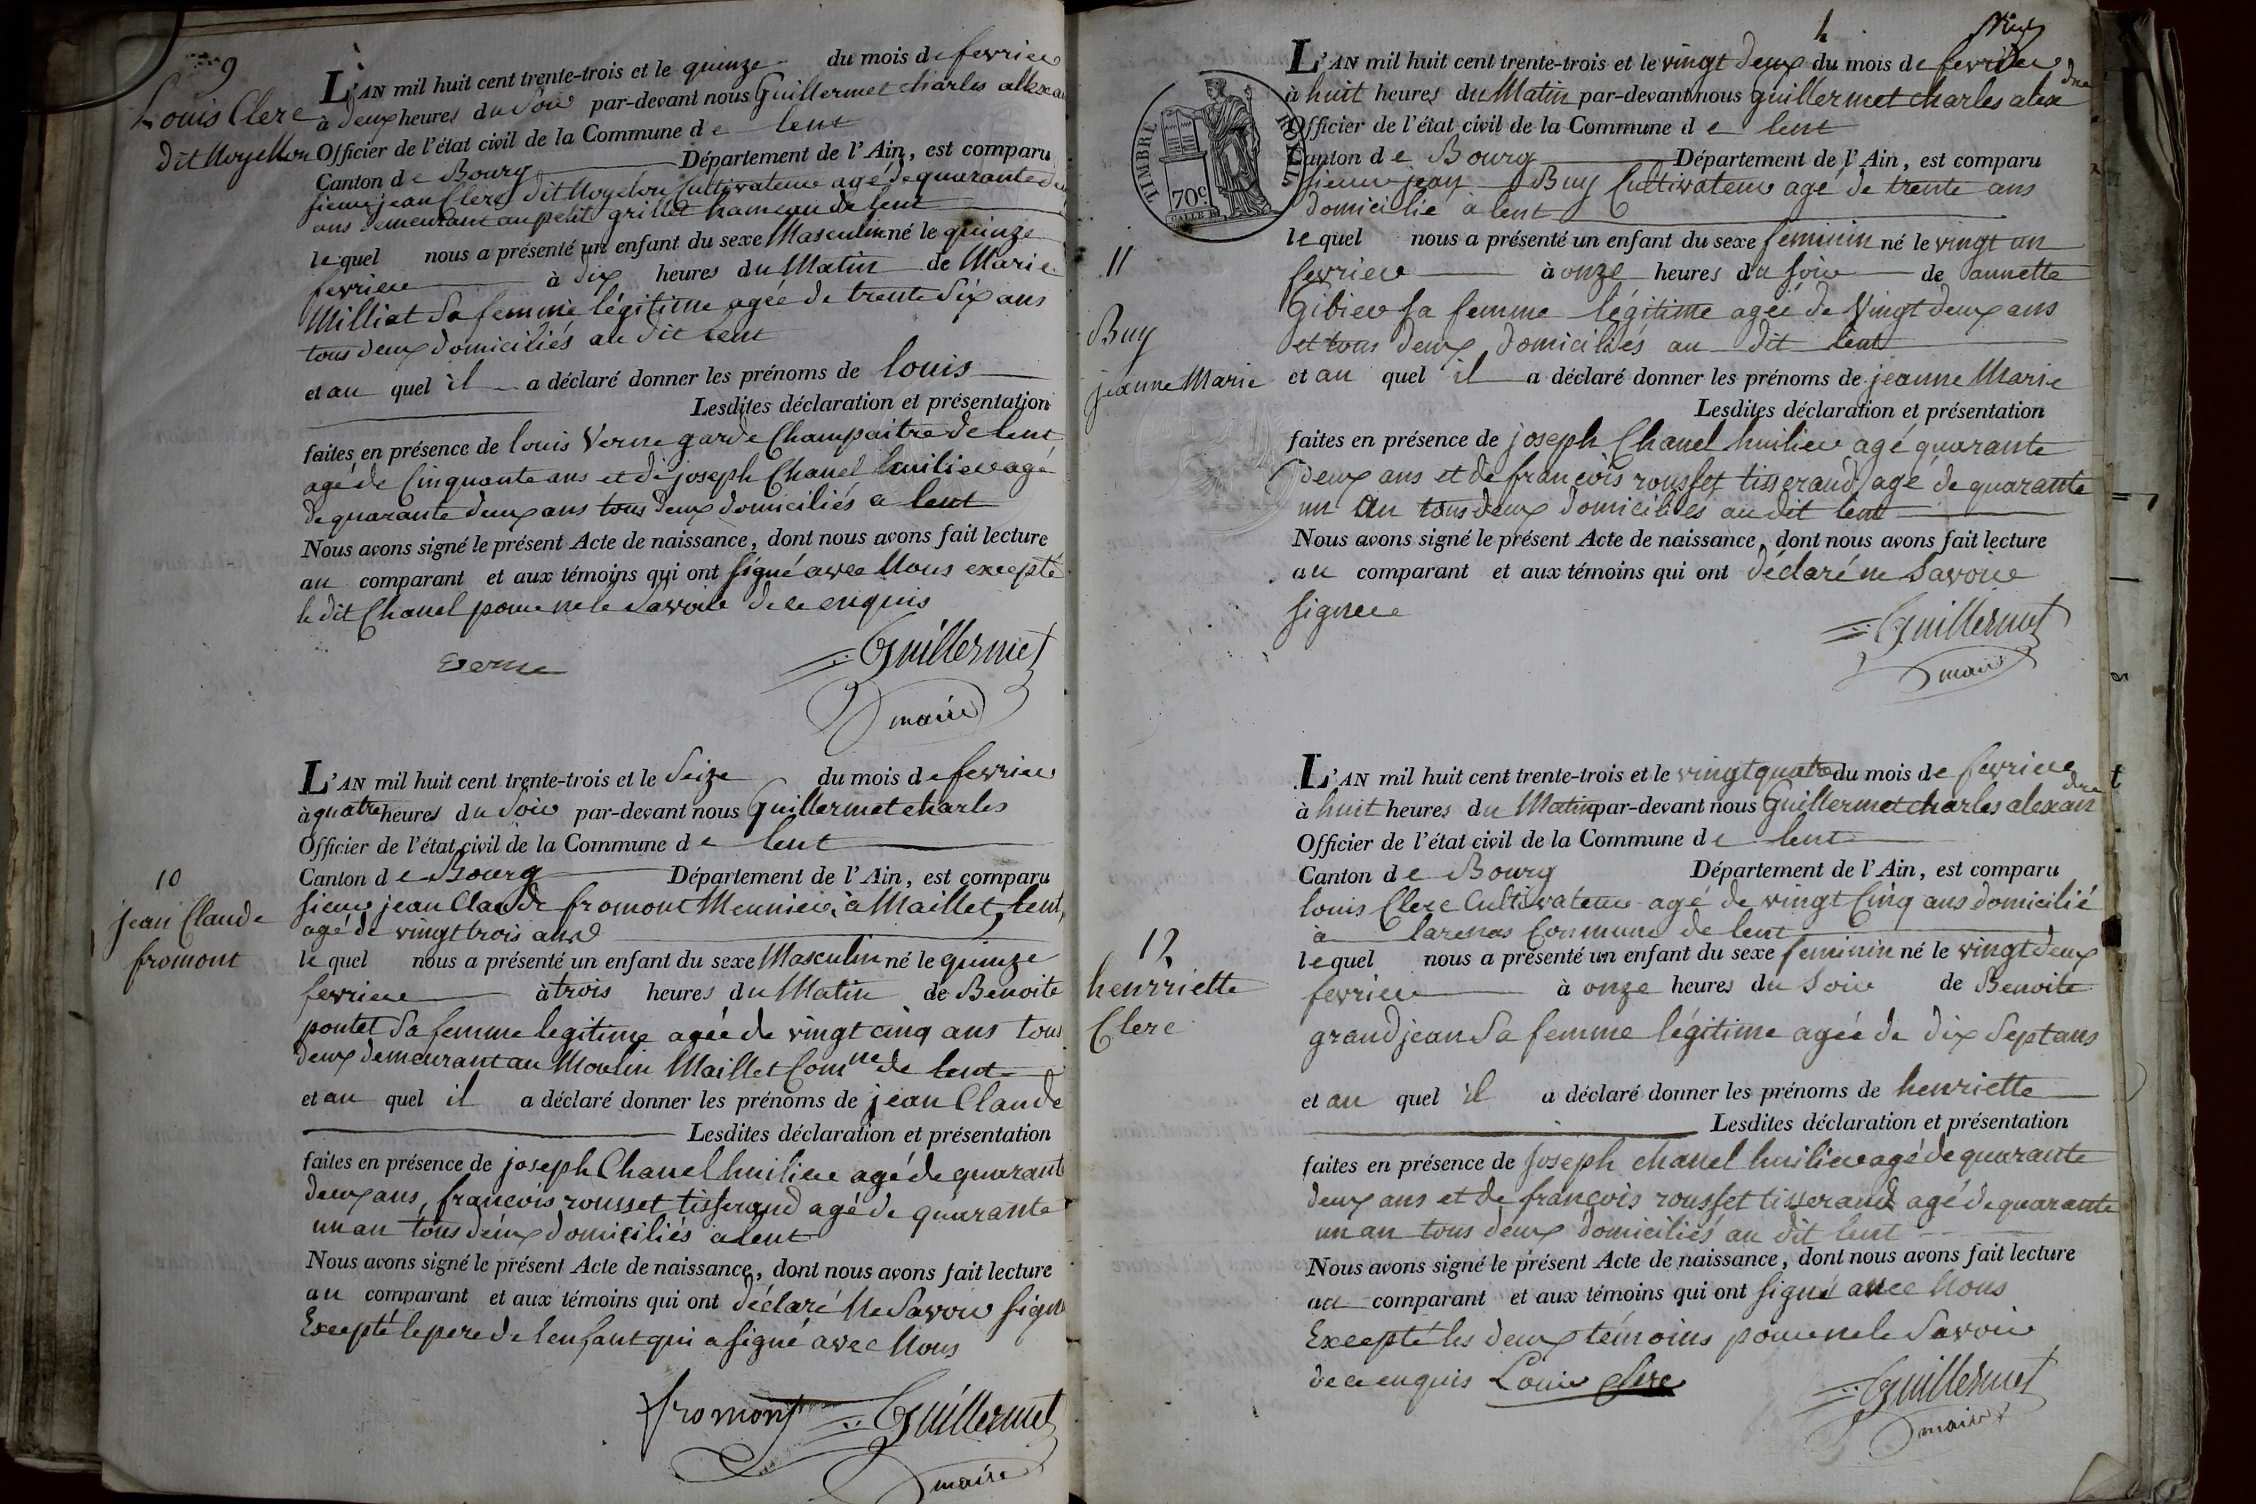 9
Louis Clerc
dit Moyellon
L'AN mil huit cent trente-trois et le quinze du mois de fevrier
à deux heures du Soir par-devant nous Guillermet charles allexan
Officier de l'état civil de la Commune de lent
Canton de Bourg Département de l'Ain, est comparu
sieur jean Clerc dit Moyelon Cultivateur agé de quarante
ans demeurant au petit grillet hameau de lent
lequel nous a présenté un enfant du sexe Masculin né le quinze
fevrier à dix heures du Matin de Marie
Milliat Sa femme légitime agée de trente Six ans
tous deux domiciliés au dit lent
et au quel il a déclaré donner les prénoms de louis
Lesdites déclaration et présentation
faites en présence de louis Verne garde Champaitre de lent
agé de Cinquante ans et de joseph Chanel huilier agé
de quarante deux ans tous deux domiciliés a lent
Nous avons signé le présent Acte de naissance, dont nous avons fait lecture
au comparant et aux témoins qui ont signé avec Nous excepté
le dit Chanel pour ne le Savoir de ce enquis
verne
Guillermet
maire
10
jean Claude
fromont
L'AN mil huit cent trente-trois et le Seize du mois de fevrier
à quatre heures du Soir par-devant nous Guillermet charles
Officier de l'état civil de la Commune de lent
Canton de Bourg Département de l'Ain, est comparu
sieur jean Claude fromont Meunier à Maillet, lent,
agé de vingt trois ans
lequel nous a présenté un enfant du sexe Masculin né le quinze
fevrier à trois heures du Matin de Benoite
poutet Sa femme legitime agée de vingt cinq ans tous
deux demeurant au Moulin Maillet Comne de lent
et au quel il a déclaré donner les prénoms de jean Claude
Lesdites déclaration et présentation
faites en présence de joseph Chanel huilier agé de quarant
deux ans, francois rousset tisserand agé de quarante
un an tous deux domiciliés a lent
Nous avons signé le présent Acte de naissance, dont nous avons fait lecture
au comparant et aux témoins qui ont déclaré Ne Savoir sign
Excepté le pere de lenfant qui a signé avec Nous
fromont
Guillermet
maire
h
L'AN mil huit cent trente-trois et le vingt deux du mois de fevrier
à huit heures du Matin par-devant nous guillermet charles alex
Officier de l'état civil de la Commune de lent
Canton de Bourg Département de l'Ain, est comparu
sieur jean Buy Cultivateur agé de trente ans
domicilié a lent
TIMBRE ROYAL
70c
11
Buy
jeanne Marie
lequel nous a présenté un enfant du sexe feminin né le vingt un
fevrier à onze heures du soir de annette
Gibier sa femme légitime agée de Vingt deux ans
et tous deux domiciliés au dit lent
et au quel il a déclaré donner les prénoms de jeanne Marie
Lesdites déclaration et présentation
faites en présence de joseph Chanel huilier agé quarante
deux ans et de francois rousset tisserand agé de quarante
un an tous deux domiciliés au dit lent
Nous avons signé le présent Acte de naissance, dont nous avons fait lecture
au comparant et aux témoins qui ont déclaré ne Savoir
signer
Guillermet
maire
12
henrriette
Clerc
L'AN mil huit cent trente-trois et le vingt quatre du mois de fevrier
à huit heures du Matin par-devant nous Guillermet charles alexandre
Officier de l'état civil de la Commune de lent
Canton de Bourg Département de l'Ain, est comparu
louis Clerc Cultivateur agé de vingt Cinq ans domicilié
à larenas Commune de lent
lequel nous a présenté un enfant du sexe feminin né le vingt deux
fevrier à onze heures du Soir de Benoite
grandjean Sa femme légitime agée de dix Sept ans
et au quel il a déclaré donner les prénoms de henriette
Lesdites déclaration et présentation
faites en présence de Joseph chanel huilier agé de quarante
deux ans et de francois rousset tisserand agé de quarante
un an tous deux domiciliés au dit lent
Nous avons signé le présent Acte de naissance, dont nous avons fait lecture
au comparant et aux témoins qui ont signé avec Nous
Excepté les deux témoins pour ne le Savoir
de ce enquis Louis Clerc
Guillermet
maire